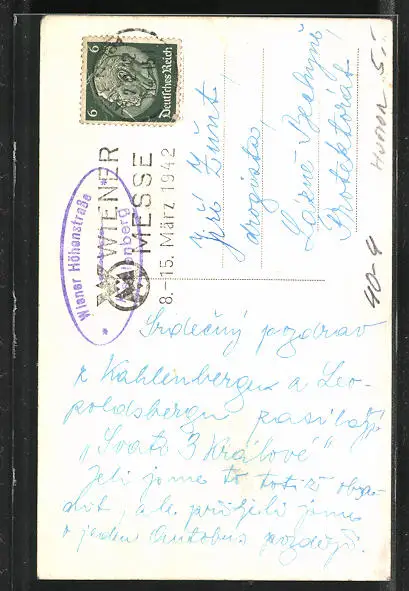 6 6
Deutsches Reich
WIENER
MESSE
8.-15. März 1942
Wiener Höhenstraße
Jiří Žunt,
drogista,
Lázně Bechyně
Protektorát
HUMOR 5.-
40-9
Srdečný pozdrav
z Kahlenbergu a Leo-
poldsbergu zasílají
„Svatí 3 Králové"
Jeli jsme to totiž
, ale přijeli jsme
o jeden Autobus později.